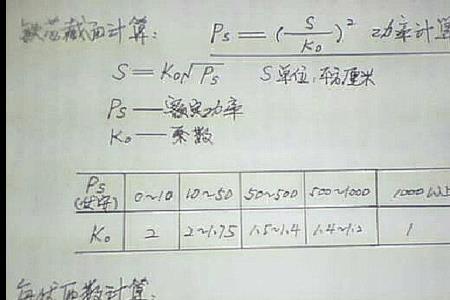 铁芯截面计算: Ps=(S/Ko)² 功率计算
S=Ko√Ps S单位,平方厘米
Ps——额定功率
Ko——系数
Ps(伏安) 0~10 10~50 50~500 500~1000 1000以上
Ko 2 2~1.75 1.5~1.4 1.4~1.2 1
每伏匝数计算: